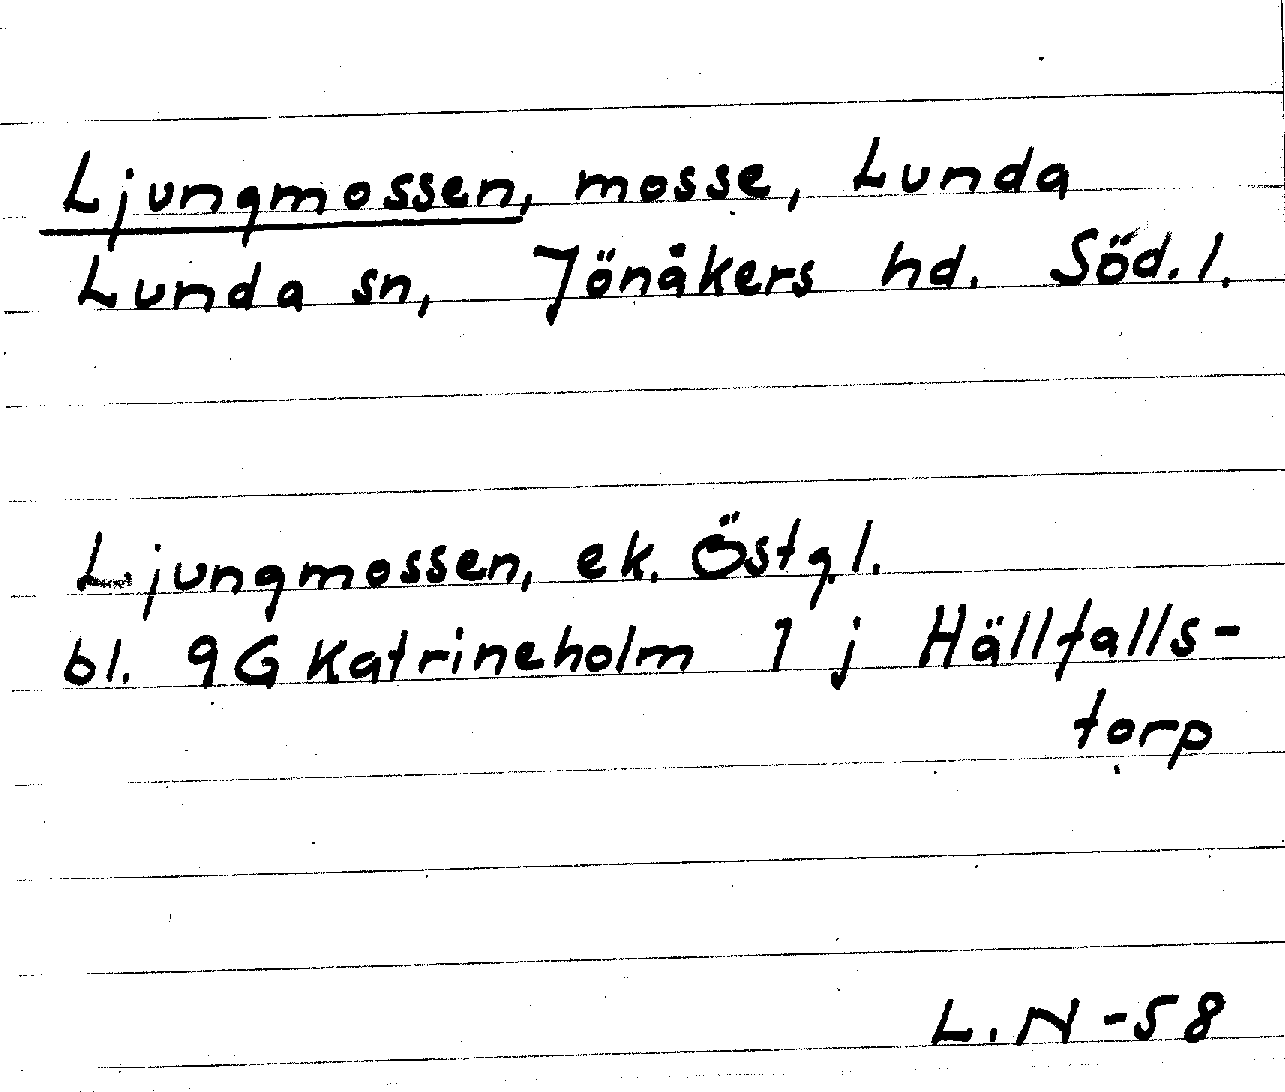 Ljungmossen, mosse, Lunda
Lunda sn, Jönåkers hd. Söd.l.
Ljungmossen, ek. Östg.l.
bl. 9G Katrineholm 1 j Hällfalls-
torp
L.N -58